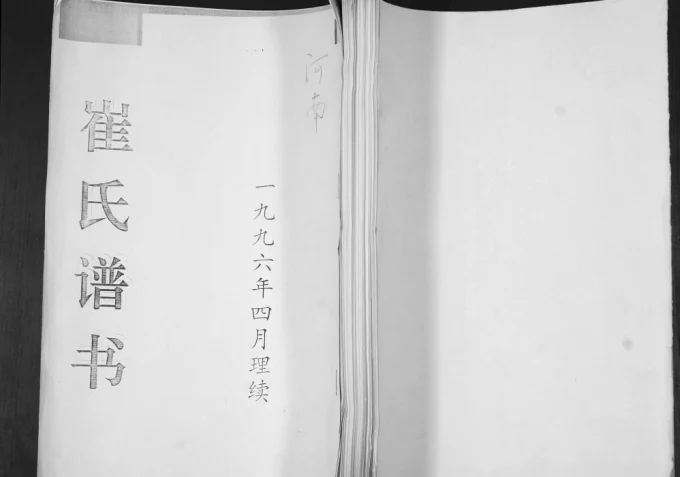 河南
一九九六年四月理续
崔氏谱书